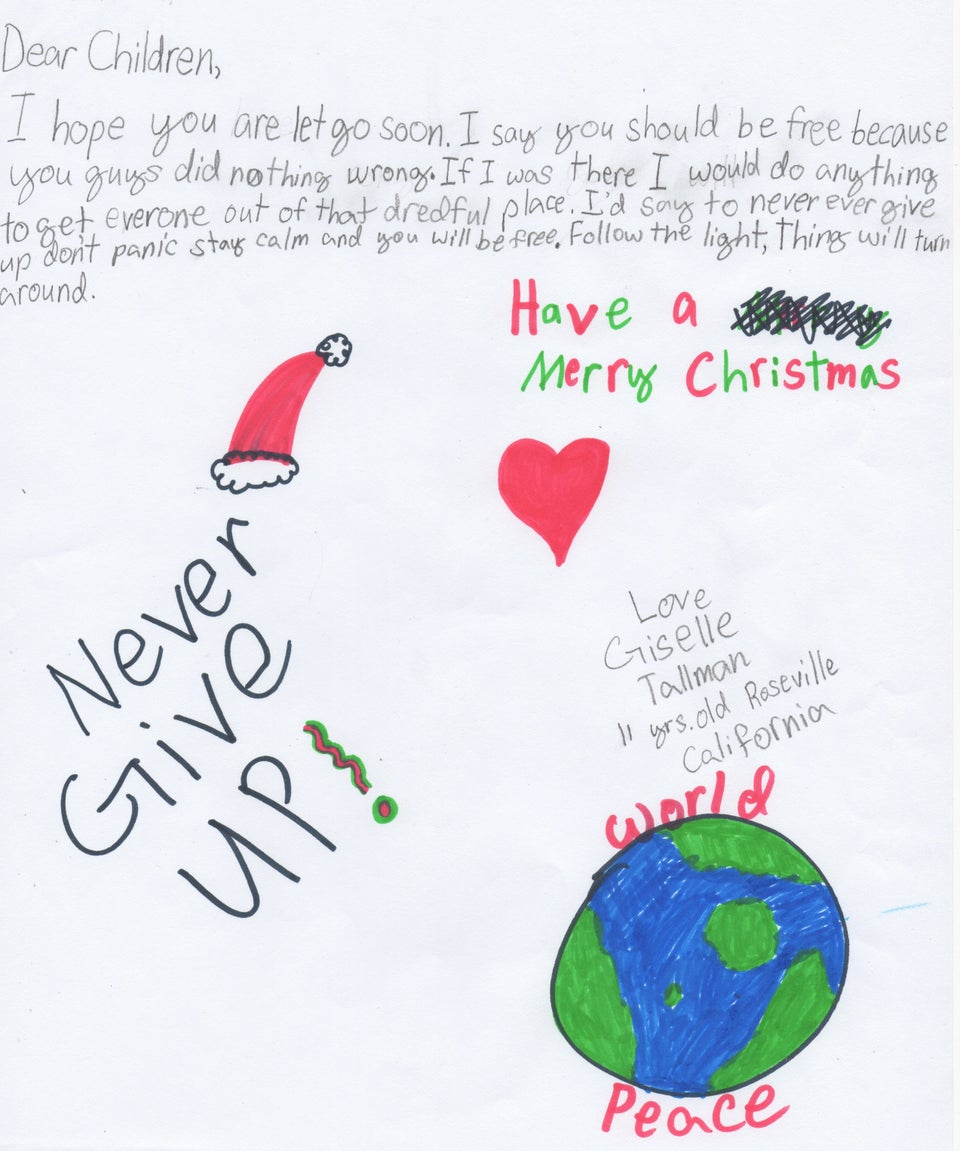 Dear Children,
I hope you are let go soon. I say you should be free because
you guys did nothing wrong. If I was there I would do anything
to get everone out of that dredful place. I'd say to never ever give
up don't panic stay calm and you will be free. Follow the light, Things will turn
around.
Have a
Merry Christmas
Never
Give
Up!
Love
Giselle
Tallman
11 yrs. old Roseville
California
World
Peace